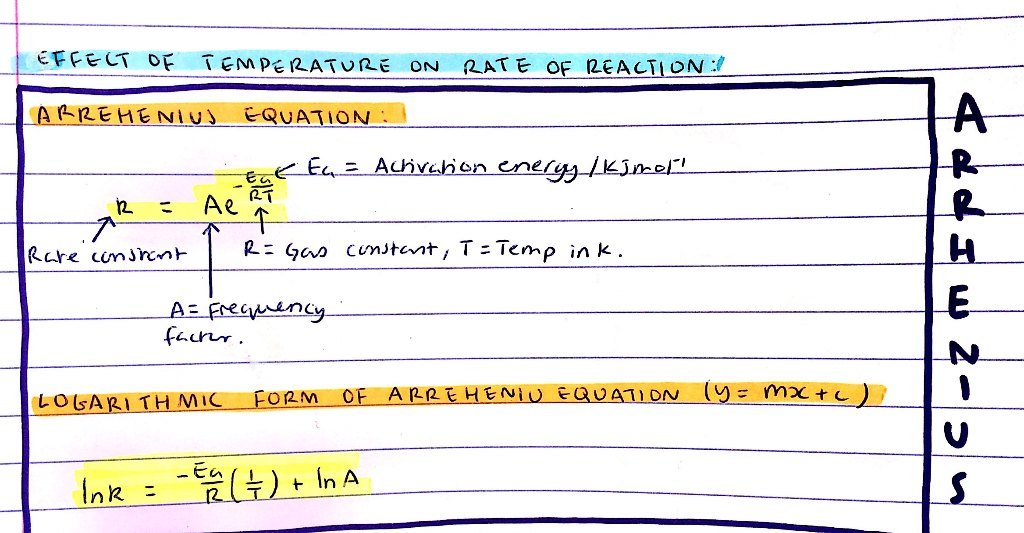 EFFECT OF TEMPERATURE ON RATE OF REACTION:
ARREHENIUS EQUATION:
k = Ae^-Ea/RT
Ea = Activation energy / kJmol⁻¹
Rate constant
R = Gas constant, T = Temp in K.
A = Frequency
factor.
LOGARITHMIC FORM OF ARREHENIU EQUATION (y = mx + c)
lnk = -Ea/R (1/T) + lnA
ARRHENIUS